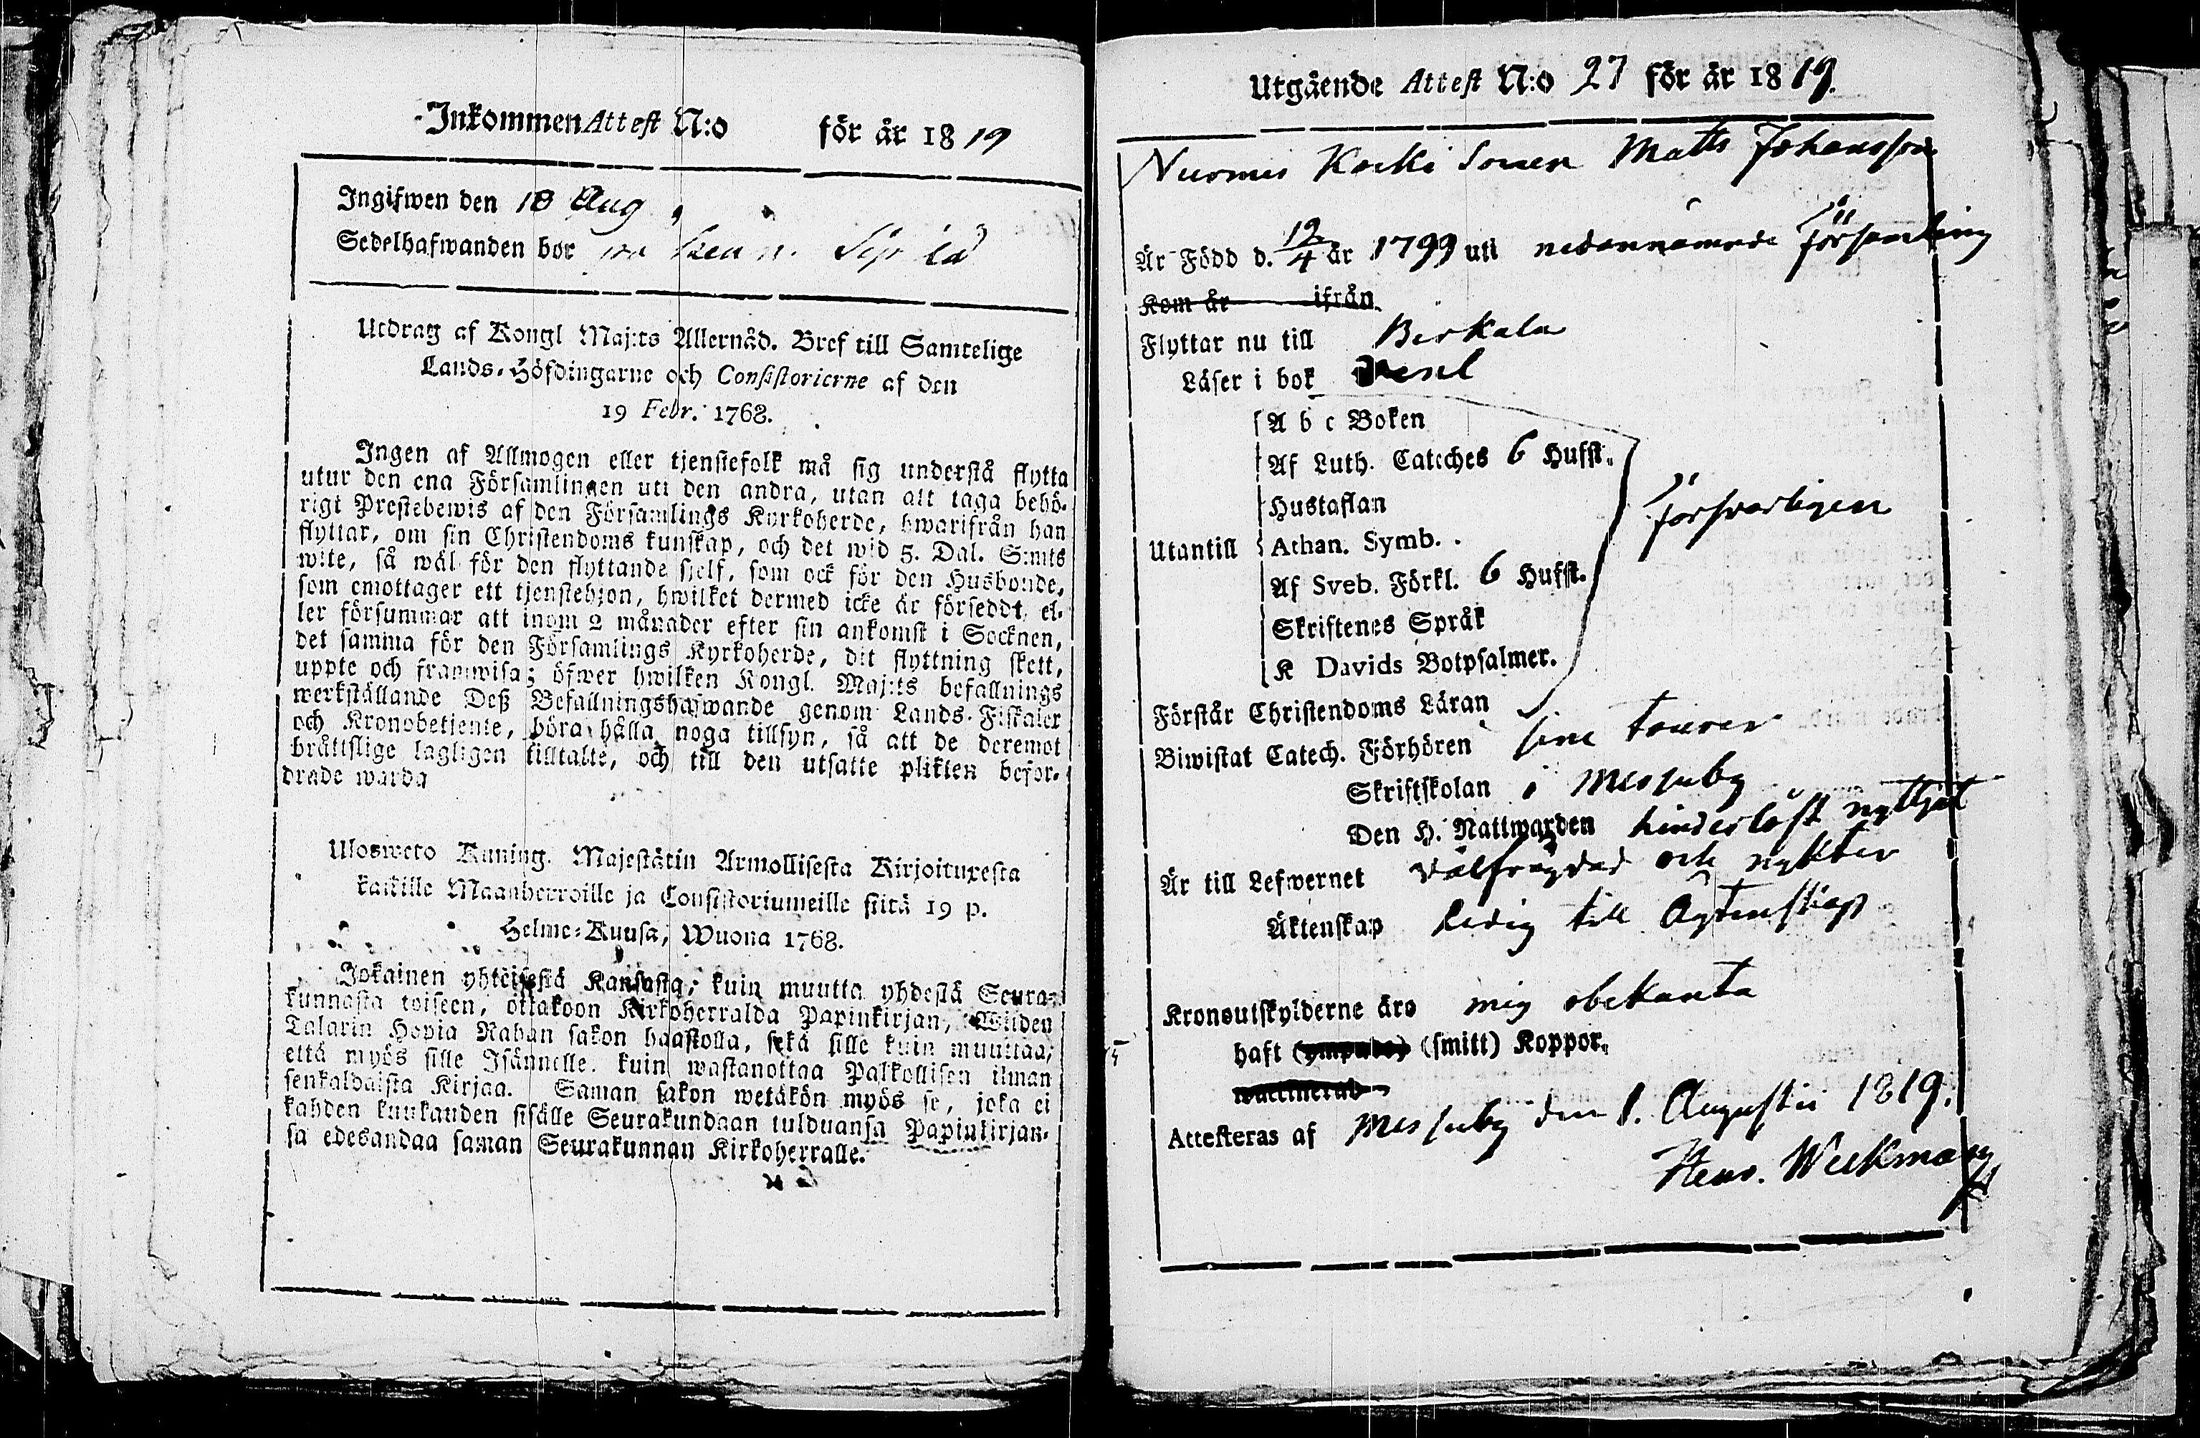 Inkommen Attest N:o för år 1819
Ingifwen den 18 Aug
Sedelhafwanden bor
Utdrag af Kongl Maj:ts Allernåd. Bref till Samtelige
Lands-Höfdingarne och Consistorierne af den
19 Febr. 1768.
Ingen af Allmogen eller tjenstefolk må sig understå flytta
utur den ena Församlingen uti den andra, utan att taga behö-
rigt Prestebewis af den Församlings Kyrkoherde, hwarifrån han
flyttar, om sin Christendoms kunskap, och det wid 5. Dal. S:mts
wite, så wäl för den flyttande sjelf, som ock för den Husbonde,
som emottager ett tjenstehjon, hwilket dermed icke är försedt, el-
ler försummar att inom 2 månader efter sin ankomst i Socknen,
det samma för den Församlings Kyrkoherde, dit flyttning skett,
uppte och framwisa; öfwer hwilken Kongl. Maj:ts befallnings
werkställande Deß Befallningshafwande genom Lands-Fiskaler
och Kronobetjente, böra hålla noga tillsyn, så att de deremot
bråttslige lagligen tilltalte, och till den utsatte plikten befor-
drade warda
Ulosweto Kuning. Majestätin Armollisesta Kirjoituxesta
kaikille Maanherroille ja Consistoriumeille siitä 19 p.
Helme-Kuusa, Wuona 1768.
Jokainen yhteisestä Kansasta, kuin muutta yhdestä Seura-
kunnasta toiseen, ottakoon Kirkoherralda Papinkirjan, Wiiden
Talarin Hopia Rahan sakon haastolla, sekä sille kuin muuttaa,
että myös sille Isännelle. kuin wastanottaa Palkollisen ilman
senkaldaista Kirjaa. Saman sakon wetäkön myös se, joka ei
kahden kuukauden sisälle Seurakundaan tulduansa Papinkirjan-
sa edesandaa saman Seurakunnan Kirkoherralle.
Utgående Attest N:o 27 för år 1819.
Nurmis Korki Sonen Matts Johansson
Är Född d. 19/4 år 1799 uti nedannämnde församling
Kom år ifrån
Flyttar nu till Birkala
Läser i bok
A b c Boken
Af Luth. Cateches 6 Hufst.
Hustaflan
Utantill Athan. Symb. försvarligen
Af Sveb. Förkl. 6 Hufst.
Skriftenes Språk
K Davids Botpsalmer.
Förstår Christendoms Läran
Biwistat Catech. Förhören sine tourer
Skriftskolan i Messuby
Den H. Nattwarden hinderlöst nyttjat
Är till Lefwernet välfrägdad och nykter
Äktenskap Ledig till Ägtenskap
Kronoutskylderne äro mig obekanta
haft (ympade) (smitt) Koppor.
waccinerad
Attesteras af Messuby den 1. Augustii 1819.
Henr. Weckman